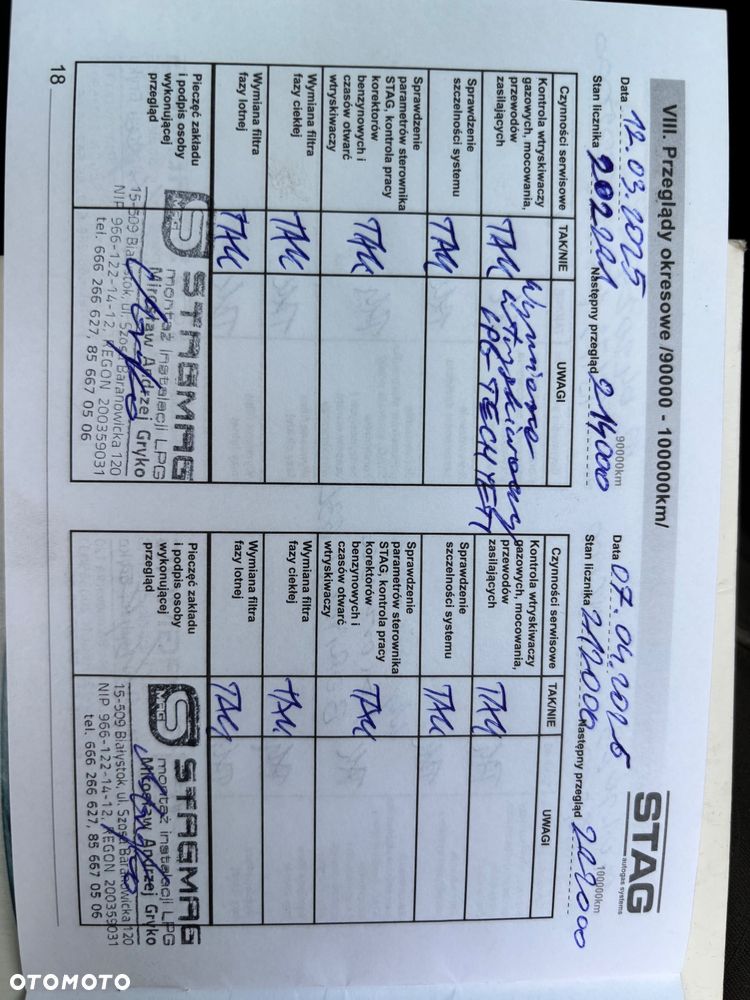 VIII. Przeglądy okresowe /90000 - 100000km/
STAG
autogas systems
Data 12.03.2025
90000km
Stan licznika 202221 Następny przegląd 214000
Czynności serwisowe TAK/NIE UWAGI
Kontrola wtryskiwaczy
gazowych, mocowania,
przewodów
zasilających
TAK
Wymiana
wtryskiwaczy
LPG TECH YETI
Sprawdzenie
szczelności systemu
TAK
Sprawdzenie
parametrów sterownika
STAG, kontrola pracy
korektorów
benzynowych i
czasów otwarć
wtryskiwaczy
TAK
Wymiana filtra
fazy ciekłej
TAK
Wymiana filtra
fazy lotnej
TAK
Pieczęć zakładu
i podpis osoby
wykonującej
przegląd
STAGMAG
montaż instalacji LPG
Mirosław Andrzej Gryko
15-509 Białystok, ul. Szosa Baranowicka 120
NIP 966-122-14-12, REGON 200359031
tel. 666 266 627, 85 667 05 06
Data 07.04.2025
100000km
Stan licznika 212000 Następny przegląd
Czynności serwisowe TAK/NIE UWAGI
Kontrola wtryskiwaczy
gazowych, mocowania,
przewodów
zasilających
TAK
Sprawdzenie
szczelności systemu
TAK
Sprawdzenie
parametrów sterownika
STAG, kontrola pracy
korektorów
benzynowych i
czasów otwarć
wtryskiwaczy
TAK
Wymiana filtra
fazy ciekłej
TAK
Wymiana filtra
fazy lotnej
TAK
Pieczęć zakładu
i podpis osoby
wykonującej
przegląd
STAGMAG
montaż instalacji LPG
Mirosław Andrzej Gryko
15-509 Białystok, ul. Szosa Baranowicka 120
NIP 966-122-14-12, REGON 200359031
tel. 666 266 627, 85 667 05 06
18
OTOMOTO